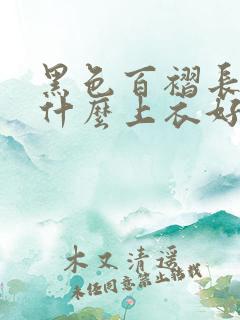 黑色百褶長
什麼上衣好
木又清遥
未经同意禁止转载